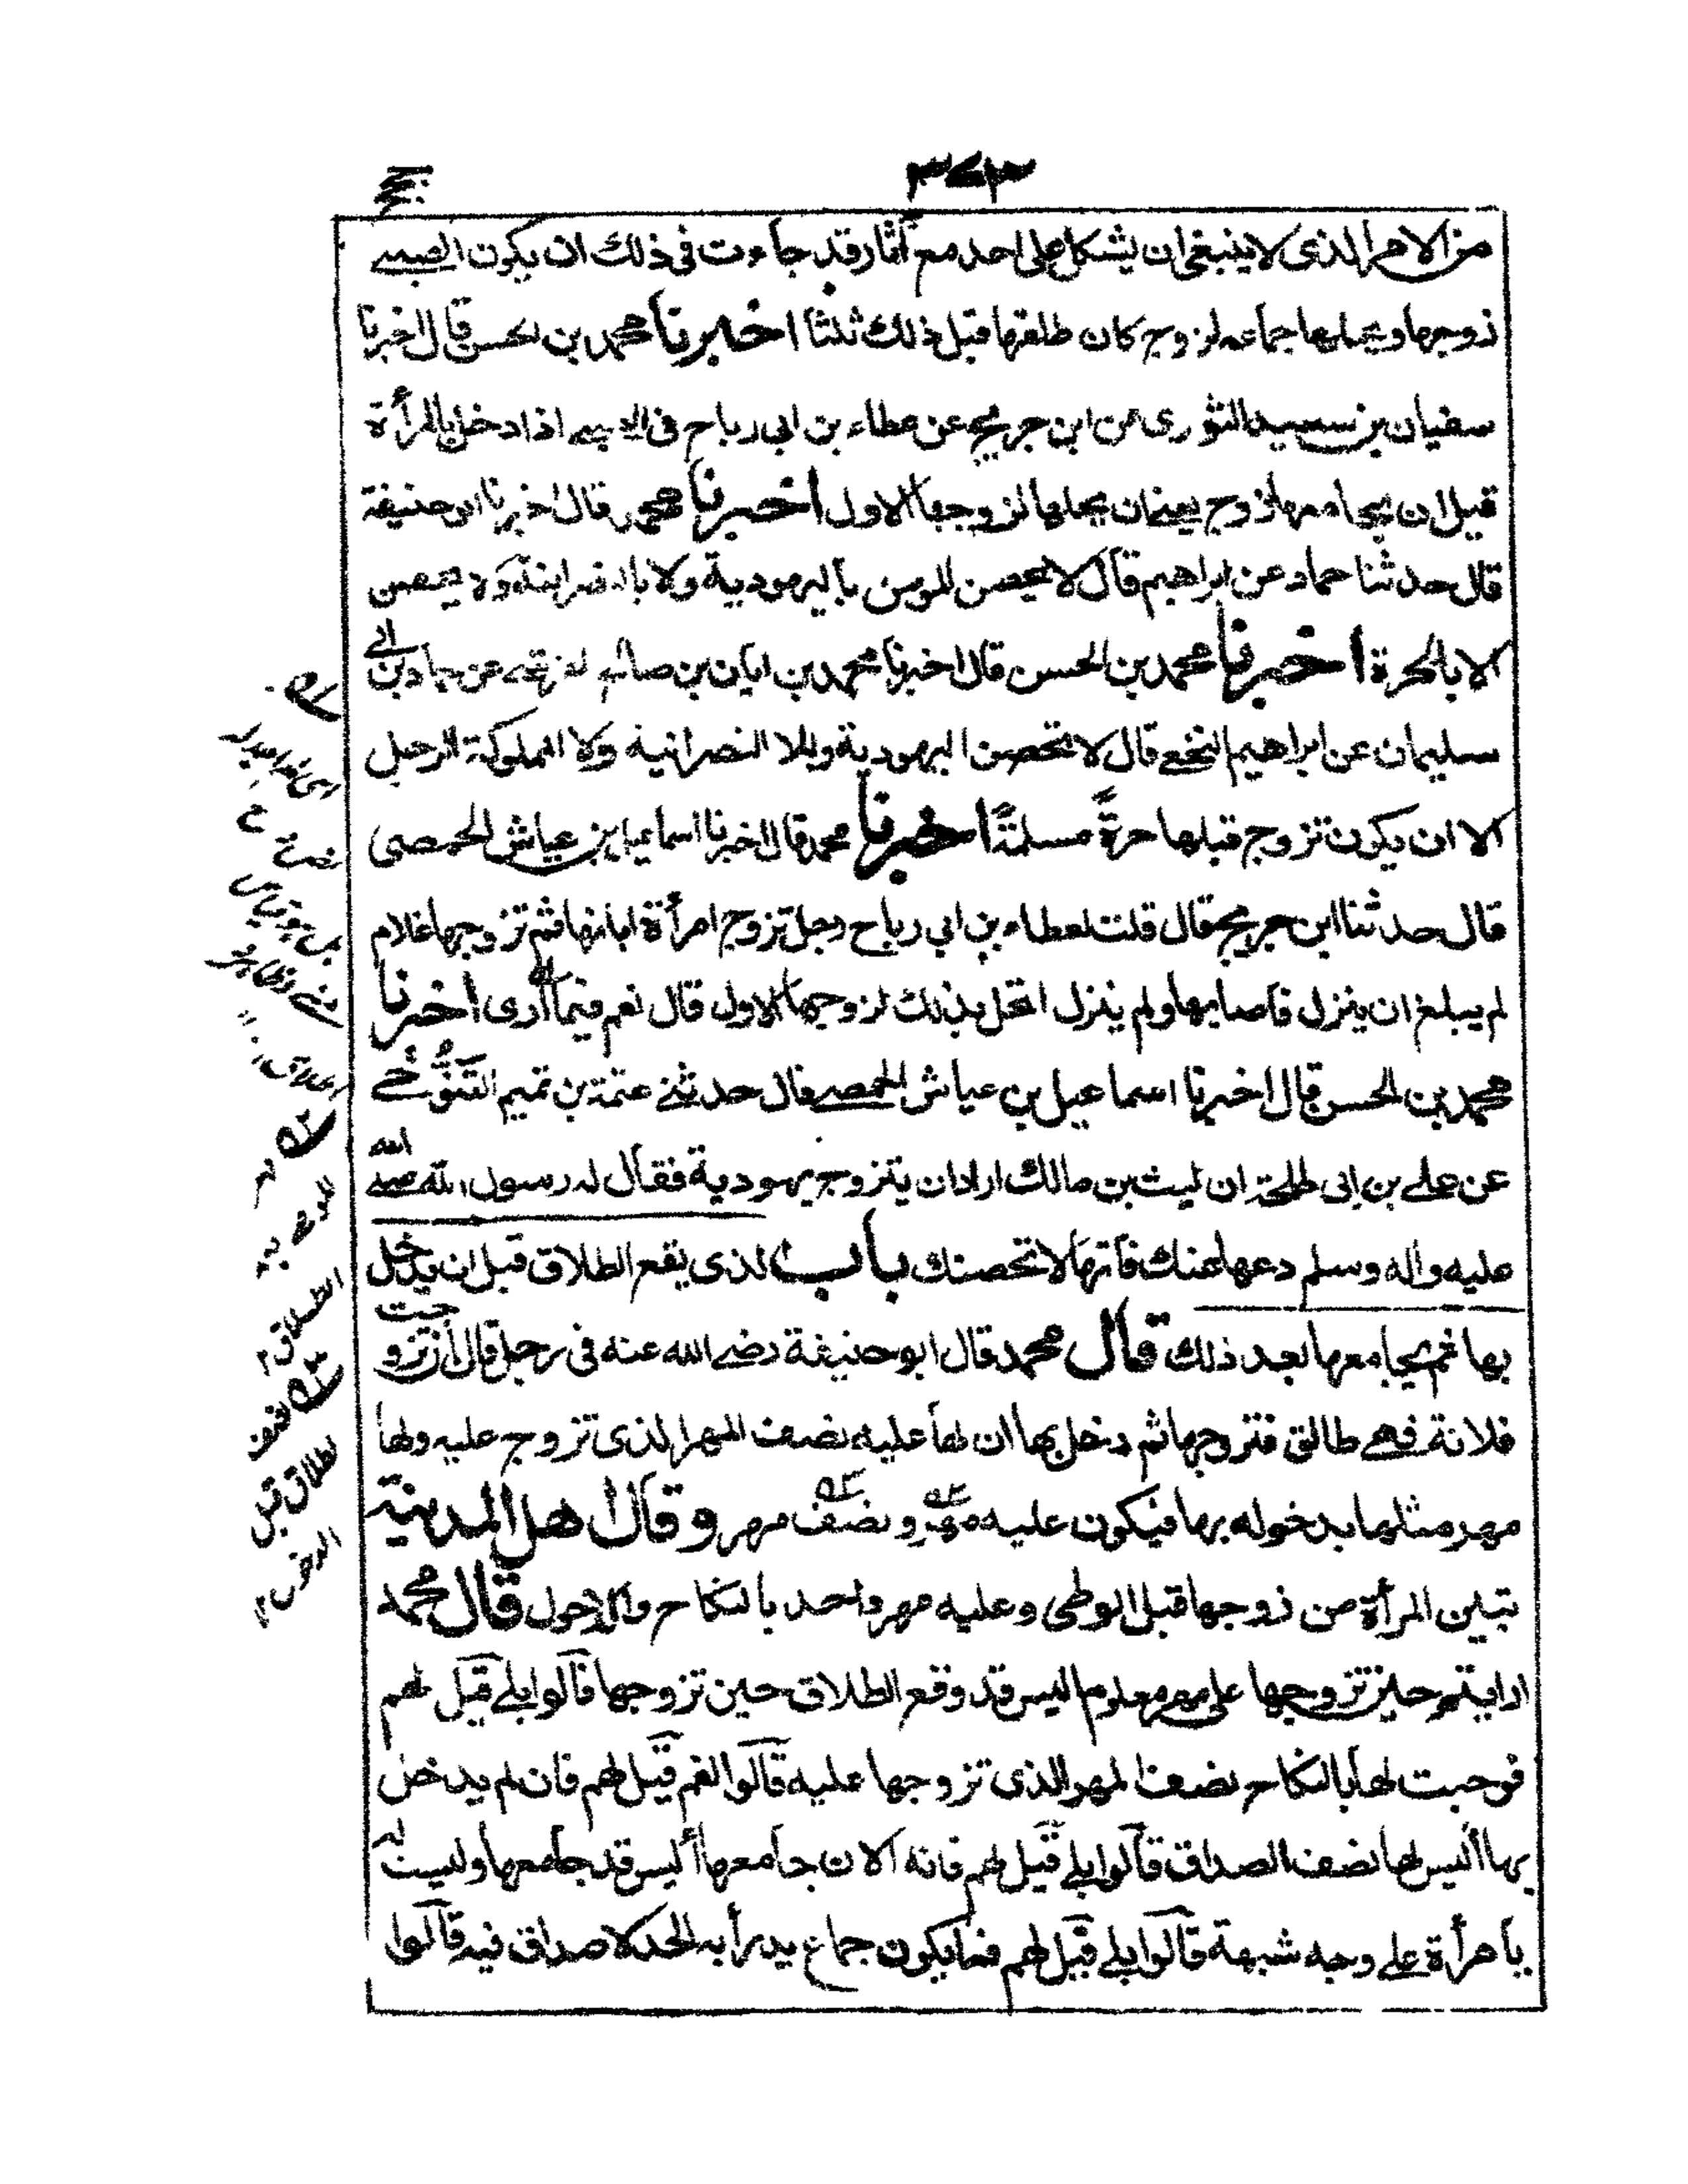 ٣٧٣
حج
من الامر الذى لا ينبغى ان يشكل على احد مع آثار قد جاءت فى ذلك ان يكون الصبى
زوجها ويحلها جماعه لزوج كان طلقها قبل ذلك ثلثا اخبرنا محمد بن الحسن قال اخبرنا
سفيان بن سعيد الثورى عن ابن جريج عن عطاء بن ابى رباح فى الصبى اذا دخل بالمرأة
قبل ان يجامعها زوج يعنى ان يحلها لزوجها الاول اخبرنا محمد قال اخبرنا ابو حنيفة
قال حدثنا حماد عن ابراهيم قال لا يحصن المومن باليهودية ولا بالنصرانية ولا يحصن
الا بالحرة اخبرنا محمد بن الحسن قال اخبرنا محمد بن ابان بن صالح القرشى عن حماد بن ابى
سليمان عن ابراهيم النخعى قال لا تحصن اليهودية ولا النصرانية ولا المملوكة الرجل
الا ان يكون تزوج قبلها حرةً مسلمةً اخبرنا محمد قال اخبرنا اسماعيل بن عياش الحمصى
قال حدثنا ابن جريج قال قلت لعطاء بن ابى رباح رجل تزوج امرأة ابانها ثم تزوجها غلام
لم يبلغ ان ينزل فاصابها ولم ينزل اتحل بذلك لزوجها الاول قال نعم فيما أرى اخبرنا
محمد بن الحسن قال اخبرنا اسماعيل بن عياش الحمصى قال حدثنى عتمة بن تميم التنوخى
عن على بن ابى طلحة ان ليث بن مالك اراد ان يتزوج يهودية فقال له رسول الله صلى الله
عليه واله وسلم دعها عنك فانها لا تحصنك باب الذى يقع الطلاق قبل ان يدخل
بها ثم يجامعها بعد ذلك قال محمد قال ابو حنيفة رضى الله عنه فى رجل قال ان تزوجت
فلانة فهى طالق فتزوجها ثم دخل بها ان لها عليه نصف المهر الذى تزوج عليه ولها
مهر مثلها بدخوله بها فيكون عليه مهر ونصف مهر وقال اهل المدينة
تبين المرأة من زوجها قبل الوطى وعليه مهر واحد بالنكاح والدخول قال محمد
ارايتم حين تزوجها على مهر معلوم اليس قد وقع الطلاق حين تزوجها قالوا بلى قيل لهم
فوجبت لها بالنكاح نصف المهر الذى تزوجها عليه قالوا نعم قيل لهم فان لم يدخل
بها أليس لها نصف الصداق قالوا بلى قيل لهم فانه الان جامعها أليس قد جامعها وليست له
بامرأة على وجه شبهة قالوا بلى قيل لهم فما يكون جماع يدرأ به الحد لا صداق فيه قالوا
الطلاق
الطلاق قبل
الدخول